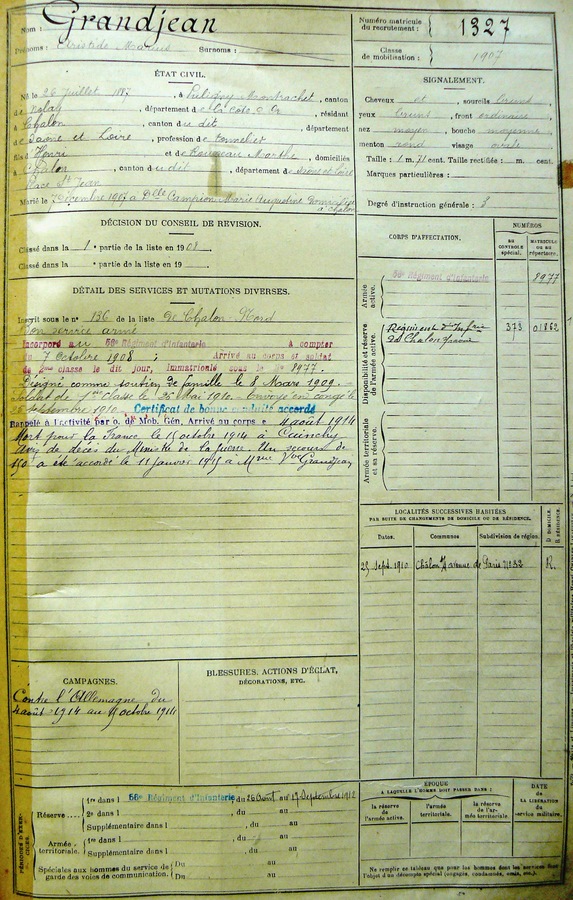 Nom : Grandjean
Prénoms : Aristide Marius Surnoms :
Numéro matricule du recrutement : 1327
Classe de mobilisation : 1907
ÉTAT CIVIL.
Né le 26 juillet 1887, à Puligny Montrachet, canton
de Nolay, département de la Côte d'Or, résidant
à Chalon, canton du dit, département
de Saône et Loire, profession de tonnelier
fils d'Henri et de Rousseau Marthe, domiciliés
à Chalon, canton du dit, département de Saône et Loire
Place St Jean
Marié le 7 décembre 1907 à Dlle Campion Marie Augustine
à Chalon
SIGNALEMENT.
Cheveux et sourcils bruns
yeux bruns, front ordinaire
nez moyen, bouche moyenne
menton rond visage ovale
Taille : 1 m. 71 cent. Taille rectifiée : m. cent.
Marques particulières :
Degré d'instruction générale : 3
DÉCISION DU CONSEIL DE REVISION.
Classé dans la 1 e partie de la liste en 1908
Classé dans la e partie de la liste en 19
DÉTAIL DES SERVICES ET MUTATIONS DIVERSES.
Inscrit sous le n° 136 de la liste de Chalon Nord
Bon service armé
Incorporé au 56e Régiment d'Infanterie à compter
du 7 octobre 1908 ; Arrivé au corps et soldat
de 2me classe le dit jour, Immatriculé sous le N° 8977.
Désigné comme soutien de famille le 8 Mars 1909.
Soldat de 1ere classe le 26 mai 1910. Envoyé en congé le
25 septembre 1910. Certificat de bonne conduite accordé
Rappelé à l'activité par o. de Mob. Gén. Arrivé au corps le 4 août 1914
Mort pour la France le 15 octobre 1914 à
Avis de décès du Ministre de la Guerre. Un secours de
150 a été accordé le 11 janvier 1915 à Mme Vve Grandjean
CORPS D'AFFECTATION.
NUMÉROS
au contrôle spécial.
matricule ou au répertoire.
Armée active.
56e Régiment d'Infanterie 8977
Disponibilité et réserve de l'armée active.
Régiment d'Infrie de Chalon s/Saône 373 01862
Armée territoriale et sa réserve.
LOCALITÉS SUCCESSIVES HABITÉES
PAR SUITE DE CHANGEMENTS DE DOMICILE OU DE RÉSIDENCE.
Dates. Communes Subdivision de région. D. DOMICILE. R. RÉSIDENCE.
25 sept. 1910 Châlon s/s avenue de Paris n° 32 R.
CAMPAGNES.
Contre l'Allemagne du
4 août 1914 au 15 octobre 1914
BLESSURES, ACTIONS D'ÉCLAT,
DÉCORATIONS, ETC.
PÉRIODES D'EXERCICES.
Réserve....
1re dans l 56e Régiment d'Infanterie, du 26 août au 17 Septembre 1912
2e dans l , du au
Supplémentaire dans l , du au
Armée territoriale.
1re dans l , du au
Supplémentaire dans l , du au
Spéciales aux hommes du service de garde des voies de communication.
Du au
Du au
ÉPOQUE
A LAQUELLE L'HOMME DOIT PASSER DANS :
la réserve de l'armée active.
l'armée territoriale.
la réserve de l'armée territoriale.
DATE de LA LIBÉRATION du service militaire.
Ne remplir ce tableau que pour les hommes dont les services font
l'objet d'un décompte spécial (engagés, condamnés, omis, etc.).